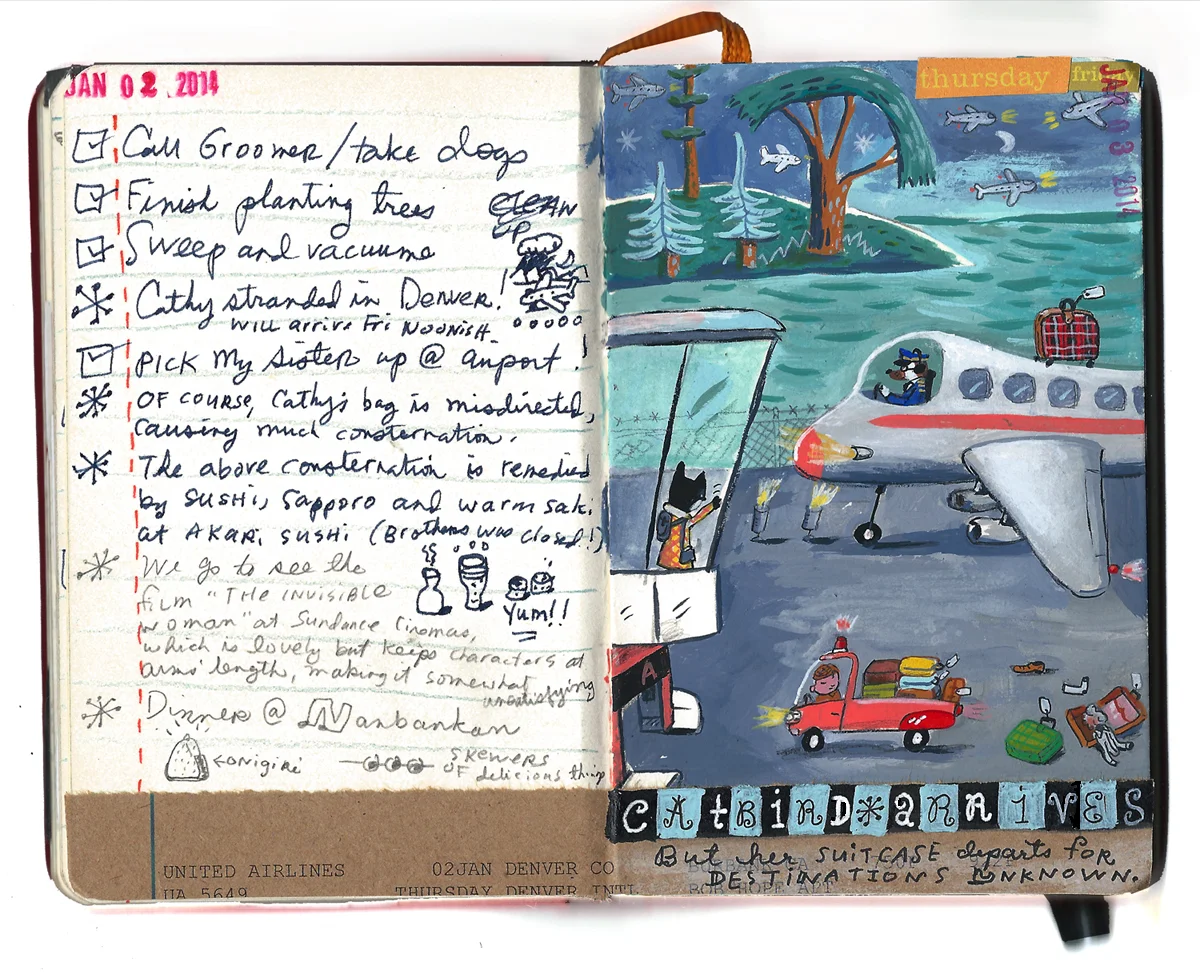 JAN 02. 2014
Call Groomer/take dogs
Finish planting trees
CLEAN
UP
Sweep and vacuume
Cathy stranded in Denver!
will arrive Fri NOONISH
PICK My Sister up @ airport!
OF COURSE, Cathy's bag is misdirected,
causing much consternation.
The above consternation is remedied
by SUSHI, Sapporo and warm saki
at AKARi SUSHi (Brothers was closed!)
We go to see the
film "THE INVISIBLE
woman" at Sundance Cinemas,
which is lovely but keeps characters at
arms' length, making it somewhat
unsatisfying
Yum!!
Dinner @ Nanbankan
←onigiri
SKEWERS
OF delicious things
UNITED AIRLINES 02JAN DENVER CO
UA 5649 THURSDAY DENVER INTL
thursday
friday
JAN 03 2014
A
CAtBiRD*aRRiVES
But her SUITCASE departs for
DESTINATIONS UNKNOWN.
BOB HOPE